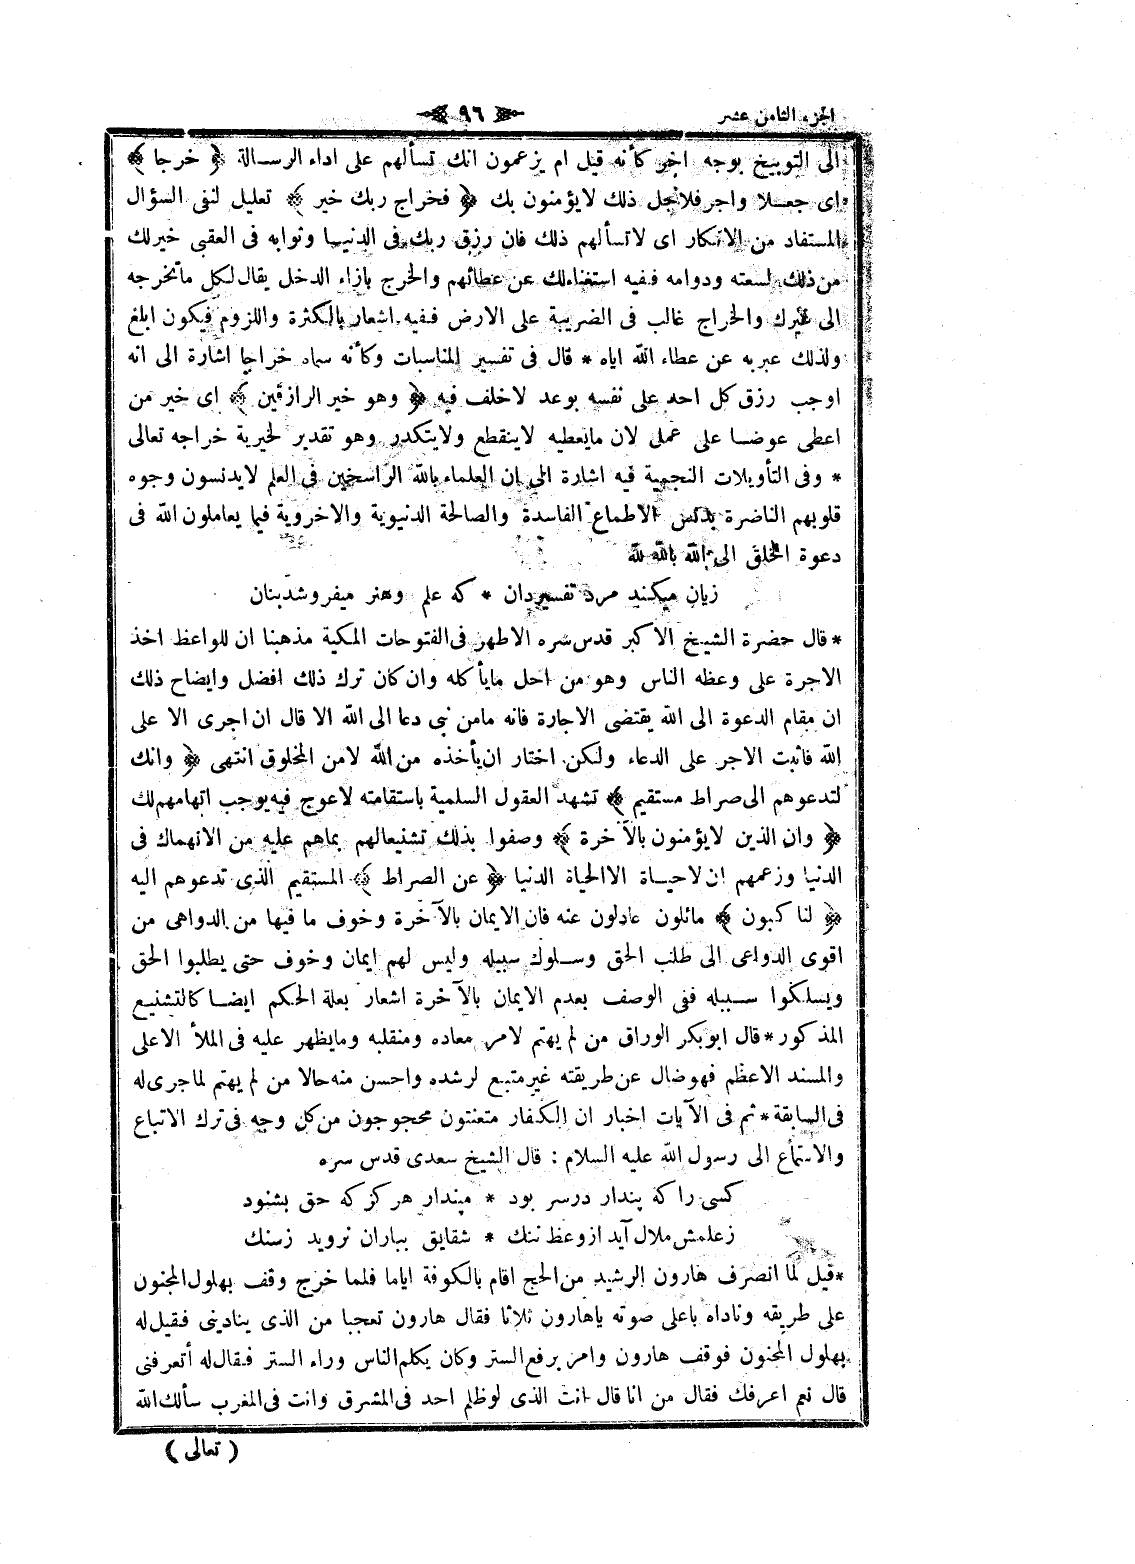 الجزء الثامن عشر
٩٦
الى التوبيخ بوجه آخر كأنه قيل ام يزعمون انك تسألهم على اداء الرسالة ﴿ خرجا ﴾
اى جعلا واجر فلاجل ذلك لايؤمنون بك ﴿ فخراج ربك خير ﴾ تعليل لنفى السؤال
المستفاد من الانكار اى لاتسألهم ذلك فان رزق ربك فى الدنيا وثوابه فى العقبى خيرلك
من ذلك لسعته ودوامه ففيه استغناءلك عن عطائهم والخرج بازاء الدخل يقال لكل ماتخرجه
الى غيرك والخراج غالب فى الضريبة على الارض ففيه اشعار بالكثرة واللزوم فيكون ابلغ
ولذلك عبربه عن عطاء الله اياه * قال فى تفسير المناسبات وكأنه سماه خراجا اشارة الى انه
اوجب رزق كل احد على نفسه بوعد لاخلف فيه ﴿ وهو خير الرازقين ﴾ اى خير من
اعطى عوضا على عمل لان مايعطيه لاينقطع ولايتكدر وهو تقدير لخيرية خراجه تعالى
* وفى التأويلات النجمية فيه اشارة الى ان العلماء بالله الراسخين فى العلم لايدنسون وجوه
قلوبهم الناضرة بدنس الاطماع الفاسدة والصالحة الدنيوية والاخروية فيما يعاملون الله فى
دعوة الخلق الى الله بالله لله
زيان ميكند مرد تفسيردان * كه علم وهنر ميفروشدبنان
* قال حضرة الشيخ الاكبر قدس سره الاطهر فى الفتوحات المكية مذهبنا ان للواعظ اخذ
الاجرة على وعظه الناس وهو من احل مايأكله وان كان ترك ذلك افضل وايضاح ذلك
ان مقام الدعوة الى الله يقتضى الاجارة فانه مامن نبى دعا الى الله الا قال ان اجرى الا على
الله فاثبت الاجر على الدعاء ولكن اختار ان يأخذه من الله لامن المخلوق انتهى ﴿ وانك
لتدعوهم الى صراط مستقيم ﴾ تشهد العقول السلمية باستقامته لاعوج فيه يوجب اتهامهم لك
﴿ وان الذين لايؤمنون بالآخرة ﴾ وصفوا بذلك تشنيعالهم بماهم عليه من الانهماك فى
الدنيا وزعمهم ان لاحياة الاالحياة الدنيا ﴿ عن الصراط ﴾ المستقيم الذى تدعوهم اليه
﴿ لنا كبون ﴾ مائلون عادلون عنه فان الايمان بالآخرة وخوف ما فيها من الدواهى من
اقوى الدواعى الى طلب الحق وسلوك سبيله وليس لهم ايمان وخوف حتى يطلبوا الحق
ويسلكوا سبيله ففى الوصف بعدم الايمان بالآخرة اشعار بعلة الحكم ايضا كالتشنيع
المذكور * قال ابوبكر الوراق من لم يهتم لامر معاده ومنقلبه ومايظهر عليه فى الملأ الاعلى
والمسند الاعظم فهوضال عن طريقته غيرمتبع لرشده واحسن منه حالا من لم يهتم لماجرى له
فى السابقة * ثم فى الآيات اخبار ان الكفار متعنتون محجوجون من كل وجه فى ترك الاتباع
والاستماع الى رسول الله عليه السلام : قال الشيخ سعدى قدس سره
كسى را كه پندار درسر بود * مپندار هر كز كه حق بشنود
زعلمش ملال آيد ازوعظ ننك * شقايق بباران نرويد زسنك
* قيل لما انصرف هارون الرشيد من الحج اقام بالكوفة اياما فلما خرج وقف بهلول المجنون
على طريقه وناداه باعلى صوته ياهارون ثلاثا فقال هارون تعجبا من الذى ينادينى فقيل له
بهلول المجنون فوقف هارون وامر برفع الستر وكان يكلم الناس وراء الستر فقال له أتعرفنى
قال نعم اعرفك فقال من انا قال انت الذى لوظلم احد فى المشرق وانت فى المغرب سألك الله
( تعالى )